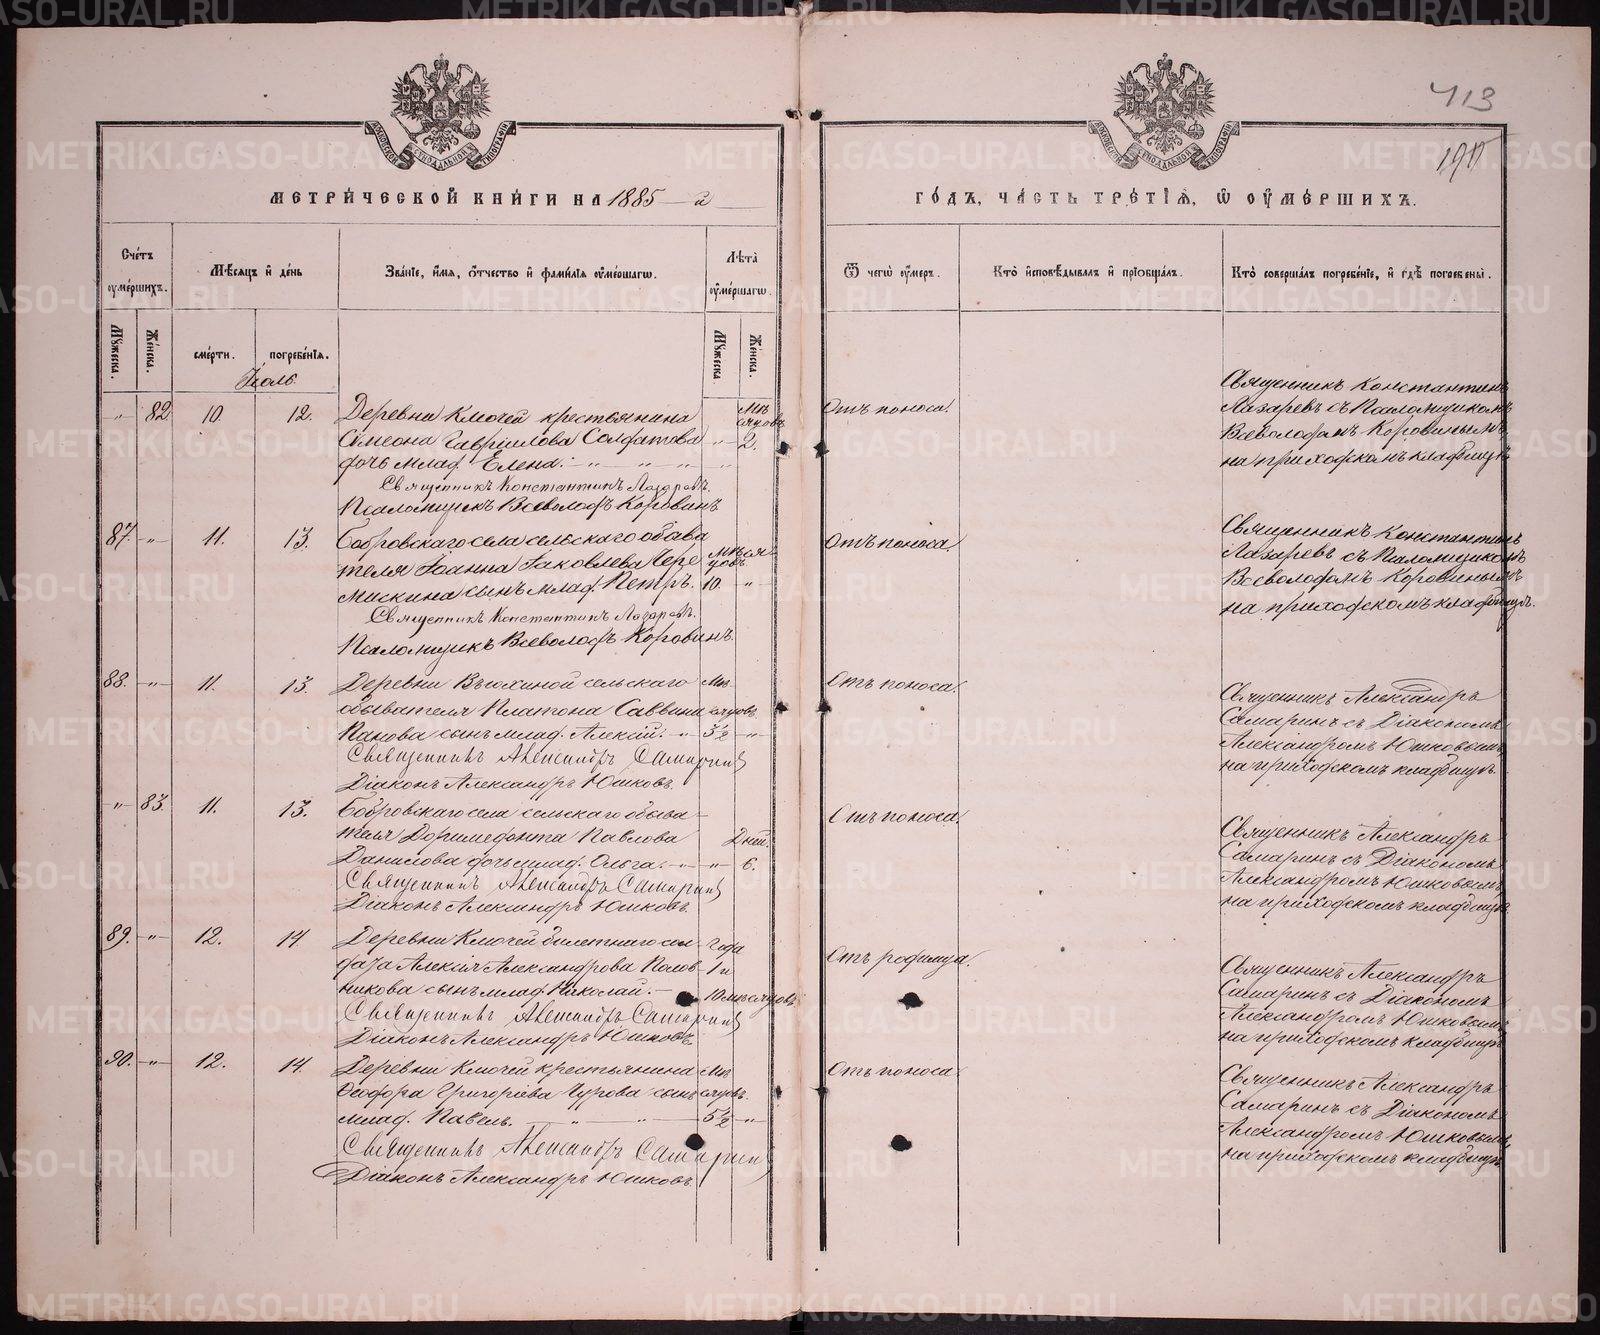 413
190
МЕТРИЧЕСКОЙ КНИГИ НА 1885-й
ГОДЪ, ЧАСТЬ ТРЕТІЯ, Ѿ ОУМЕРШИХЪ.
Счетъ оумершихъ.
Мѣсяцъ и день
Званіе, имя, отчество и фамилія оумершагѡ.
Лѣта оумершагѡ.
Ѿ чегѡ оумеръ.
Кто исповѣдывалъ и пріобщалъ.
Кто совершалъ погребеніе, и гдѣ погребены.
Мужеска.
Женска.
смерти.
погребенія.
Мужеска
Женска.
Іюль.
" 82 10. 12. Деревни Ключей крестьянина Мѣсяцовъ
Симеона Гавріилова Солдатова " 2.
дочь млад. Елена.
Священникъ Константинъ Лазаревъ.
Псаломщикъ Всеволодъ Коровинъ
Отъ поноса.
Священникъ Константинъ
Лазаревъ съ Псаломщикомъ
Всеволодомъ Коровинымъ
на приходскомъ кладбищѣ
87. " 11. 13. Бобровскаго села сельскаго обыва
теля Іоанна Іаковлева Чере Мѣсяцовъ
мискина сынъ млад. Петръ. 10. "
Священникъ Константинъ Лазаревъ.
Псаломщикъ Всеволодъ Коровинъ.
Отъ поноса.
Священникъ Константинъ
Лазаревъ съ Псаломщикомъ
Всеволодомъ Коровинымъ
на приходскомъ кладбищѣ.
88. " 11. 13. Деревни Вьюхиной сельскаго Мѣ-
обывателя Платона Саввина сяцовъ
Панова сынъ млад. Алексій. 5½ "
Священникъ Александръ Самаринъ
Діаконъ Александръ Юшковъ.
Отъ поноса.
Священникъ Александръ
Самаринъ съ Діакономъ
Александромъ Юшковымъ
на приходскомъ кладбищѣ.
" 83. 11. 13. Бобровскаго села сельскаго обыва-
теля Доримедонта Павлова Дней.
Данилова дочь млад. Ольга. " 6.
Священникъ Александръ Самаринъ
Діаконъ Александръ Юшковъ.
Отъ поноса.
Священникъ Александръ
Самаринъ съ Діакономъ
Александромъ Юшковымъ
на приходскомъ кладбищѣ.
89. " 12. 14. Деревни Ключей билетнаго сол- года
дата Алексія Александрова Полов 1 и
никова сынъ млад. Николай. 10 мѣсяцовъ
Священникъ Александръ Самаринъ
Діаконъ Александръ Юшковъ.
Отъ родимца.
Священникъ Александръ
Самаринъ съ Діакономъ
Александромъ Юшковымъ
на приходскомъ кладбищѣ
90. " 12. 14. Деревни Ключей крестьянина Мѣ
Ѳеодора Григоріева сынъ сяцовъ.
млад. Павелъ. 5½ "
Священникъ Александръ Самаринъ
Діаконъ Александръ Юшковъ.
Отъ поноса.
Священникъ Александръ
Самаринъ съ Діакономъ
Александромъ Юшковымъ
на приходскомъ кладбищѣ
METRIKI.GASO-URAL.RU